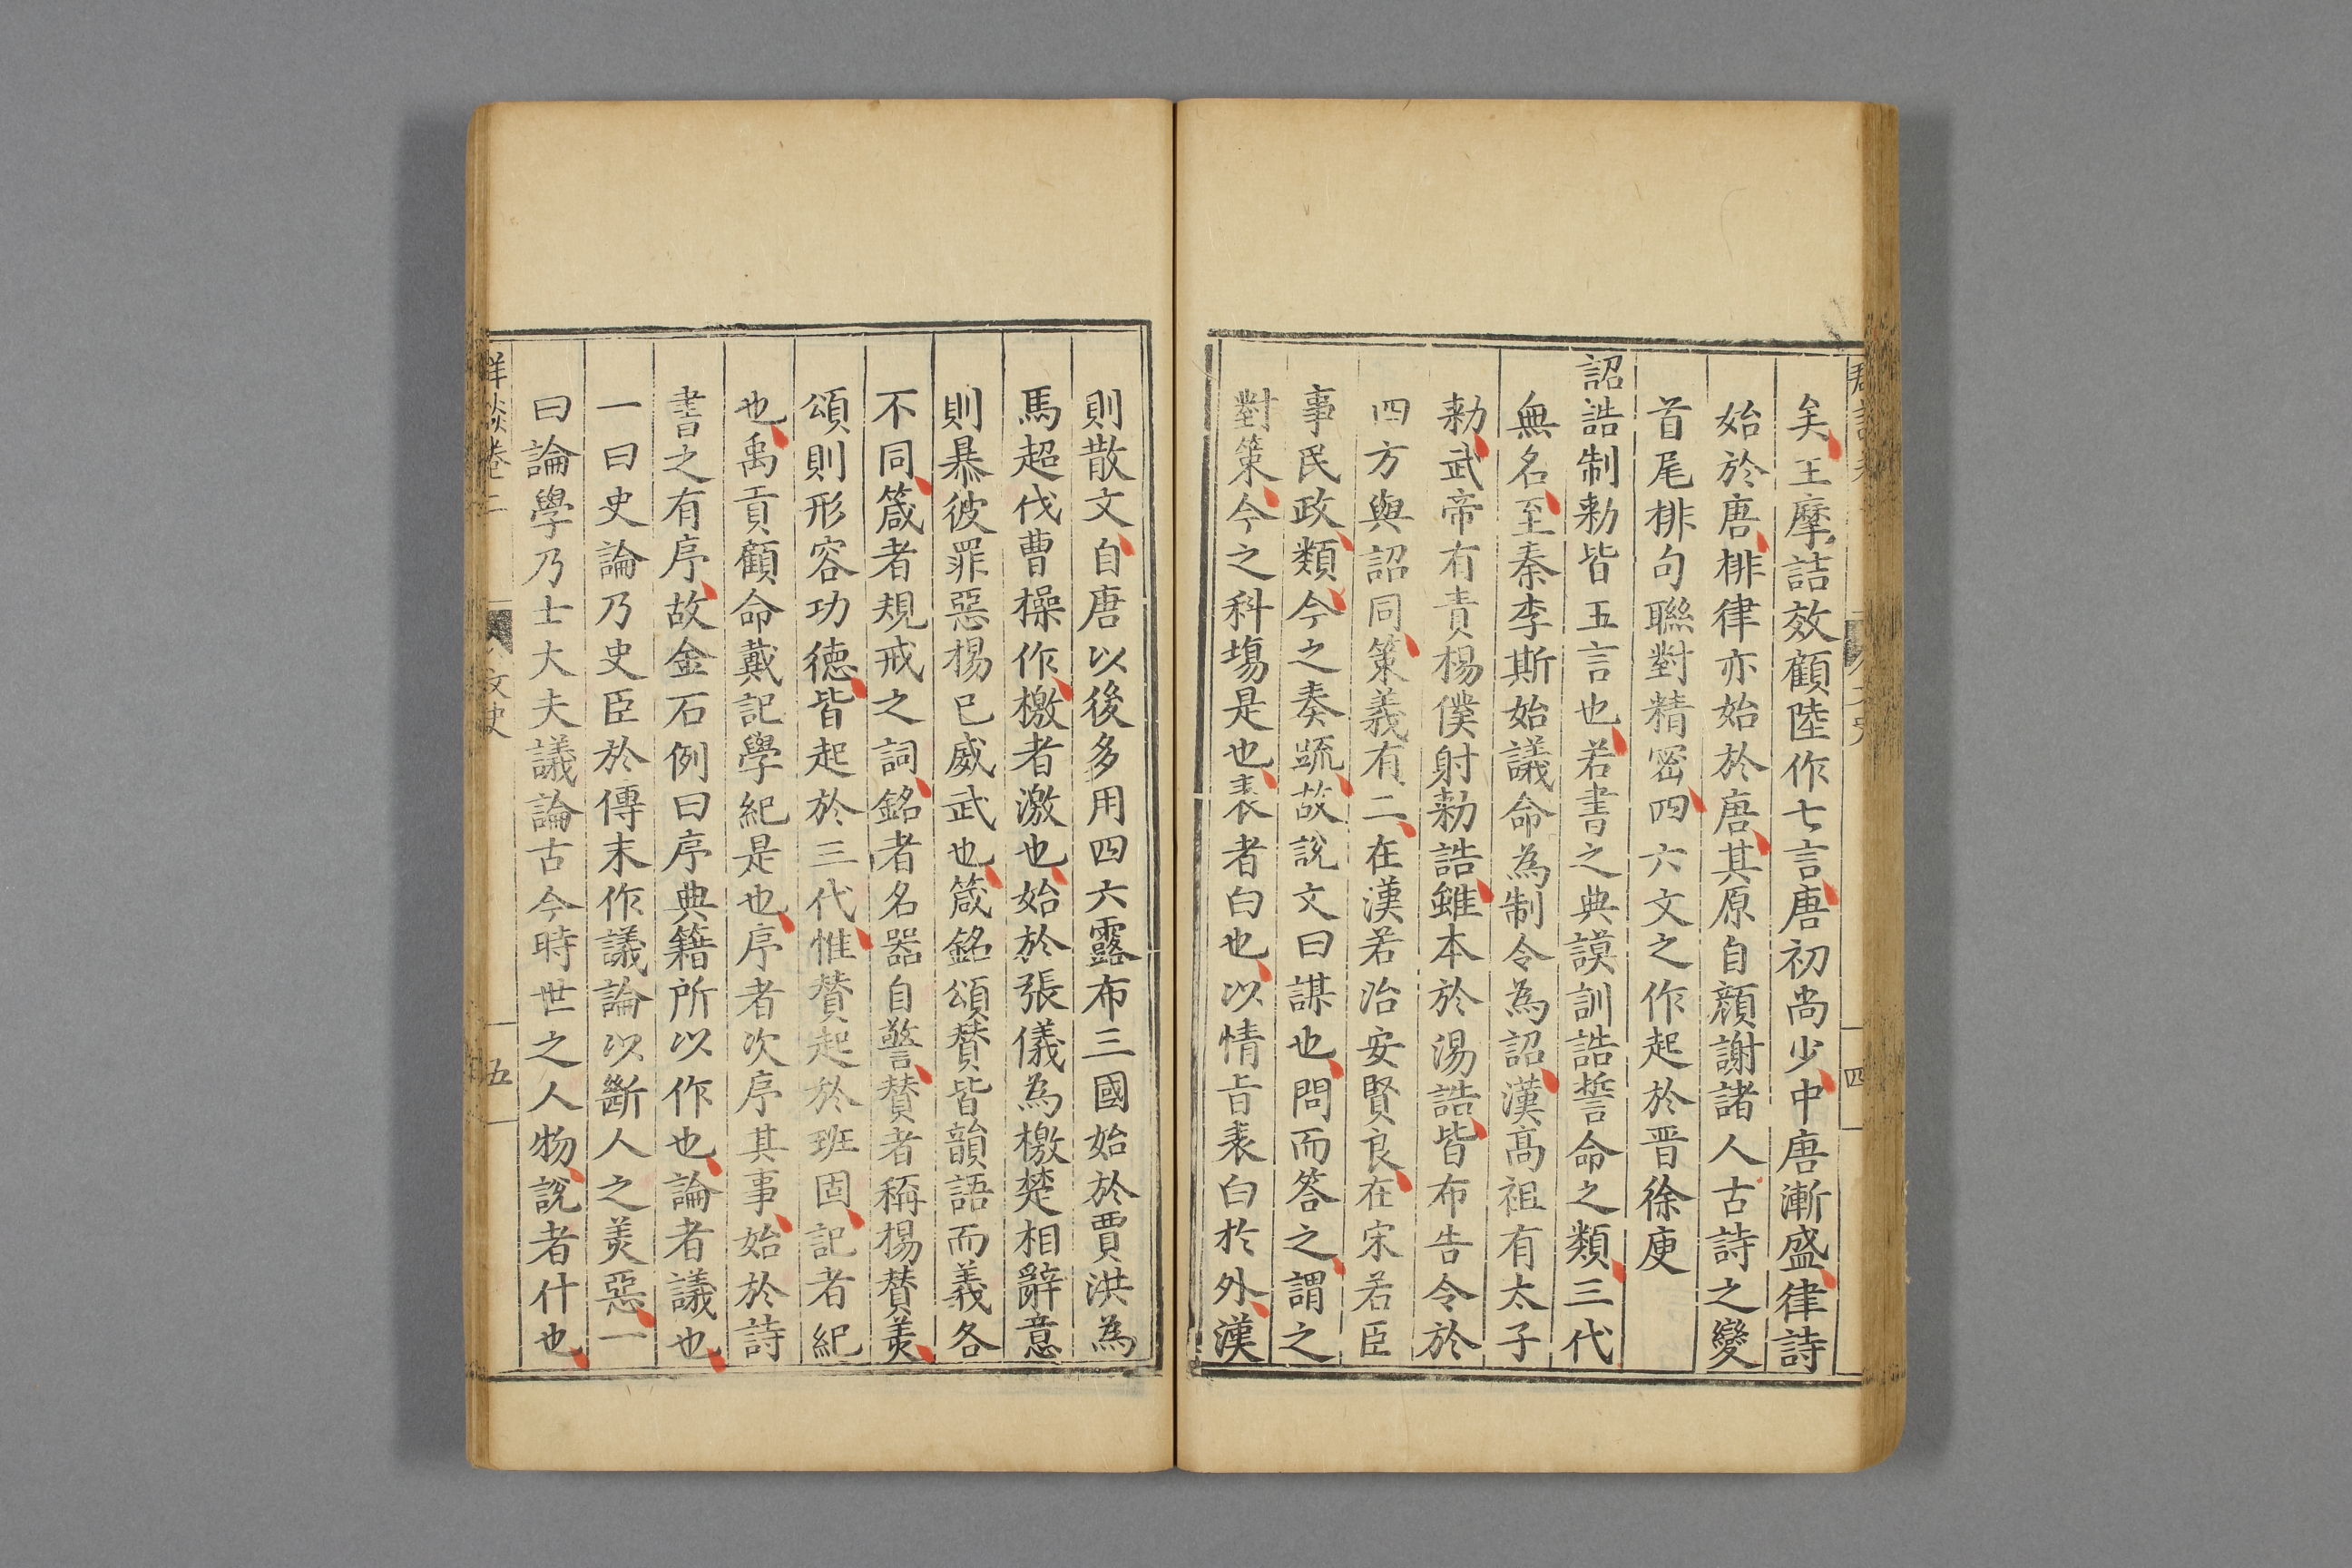 矣王摩詰效顧陸作七言唐初尚少中唐漸盛律詩
始於唐排律亦始於唐其原自顔謝諸人古詩之變
首尾排句聯對精密四六文之作起於晋徐庾
詔誥制勑皆五言也若書之典謨訓誥誓命之類三代
無名至秦李斯始議命為制令為詔漢髙祖有太子
勑武帝有責楊僕射勑誥雖本於湯誥皆布告令於
四方與詔同策義有二在漢若治安賢良在宋若臣
事民政類今之奏疏故說文曰謀也問而答之謂之
對策今之科塲是也表者白也以情旨表白於外漢
則散文自唐以後多用四六露布三國始於賈洪為
馬超伐曹操作檄者激也始於張儀為檄楚相辭意
則暴彼罪惡楊已威武也箴銘頌賛皆韻語而義各
不同箴者規戒之詞銘者名器自警賛者稱揚賛美
頌則形容功德皆起於三代惟賛起於班固記者紀
也禹貢顧命戴記學紀是也序者次序其事始於詩
書之有序故金石例曰序典籍所以作也論者議也
一曰史論乃史臣於傳末作議論以斷人之美惡一
曰論學乃士大夫議論古今時世之人物說者什也
文史
五
四